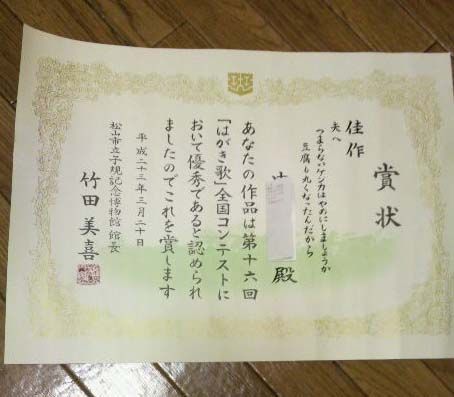 賞状
佳作
夫へ
つまらないケンカはやめにしましょうか
豆腐も丸くなったんだから
殿
あなたの作品は第十六回
「はがき歌」全国コンテストに
おいて優秀であると認められ
ましたのでこれを賞します
平成二十三年三月二十日
松山市立子規記念博物館館長
竹田美喜